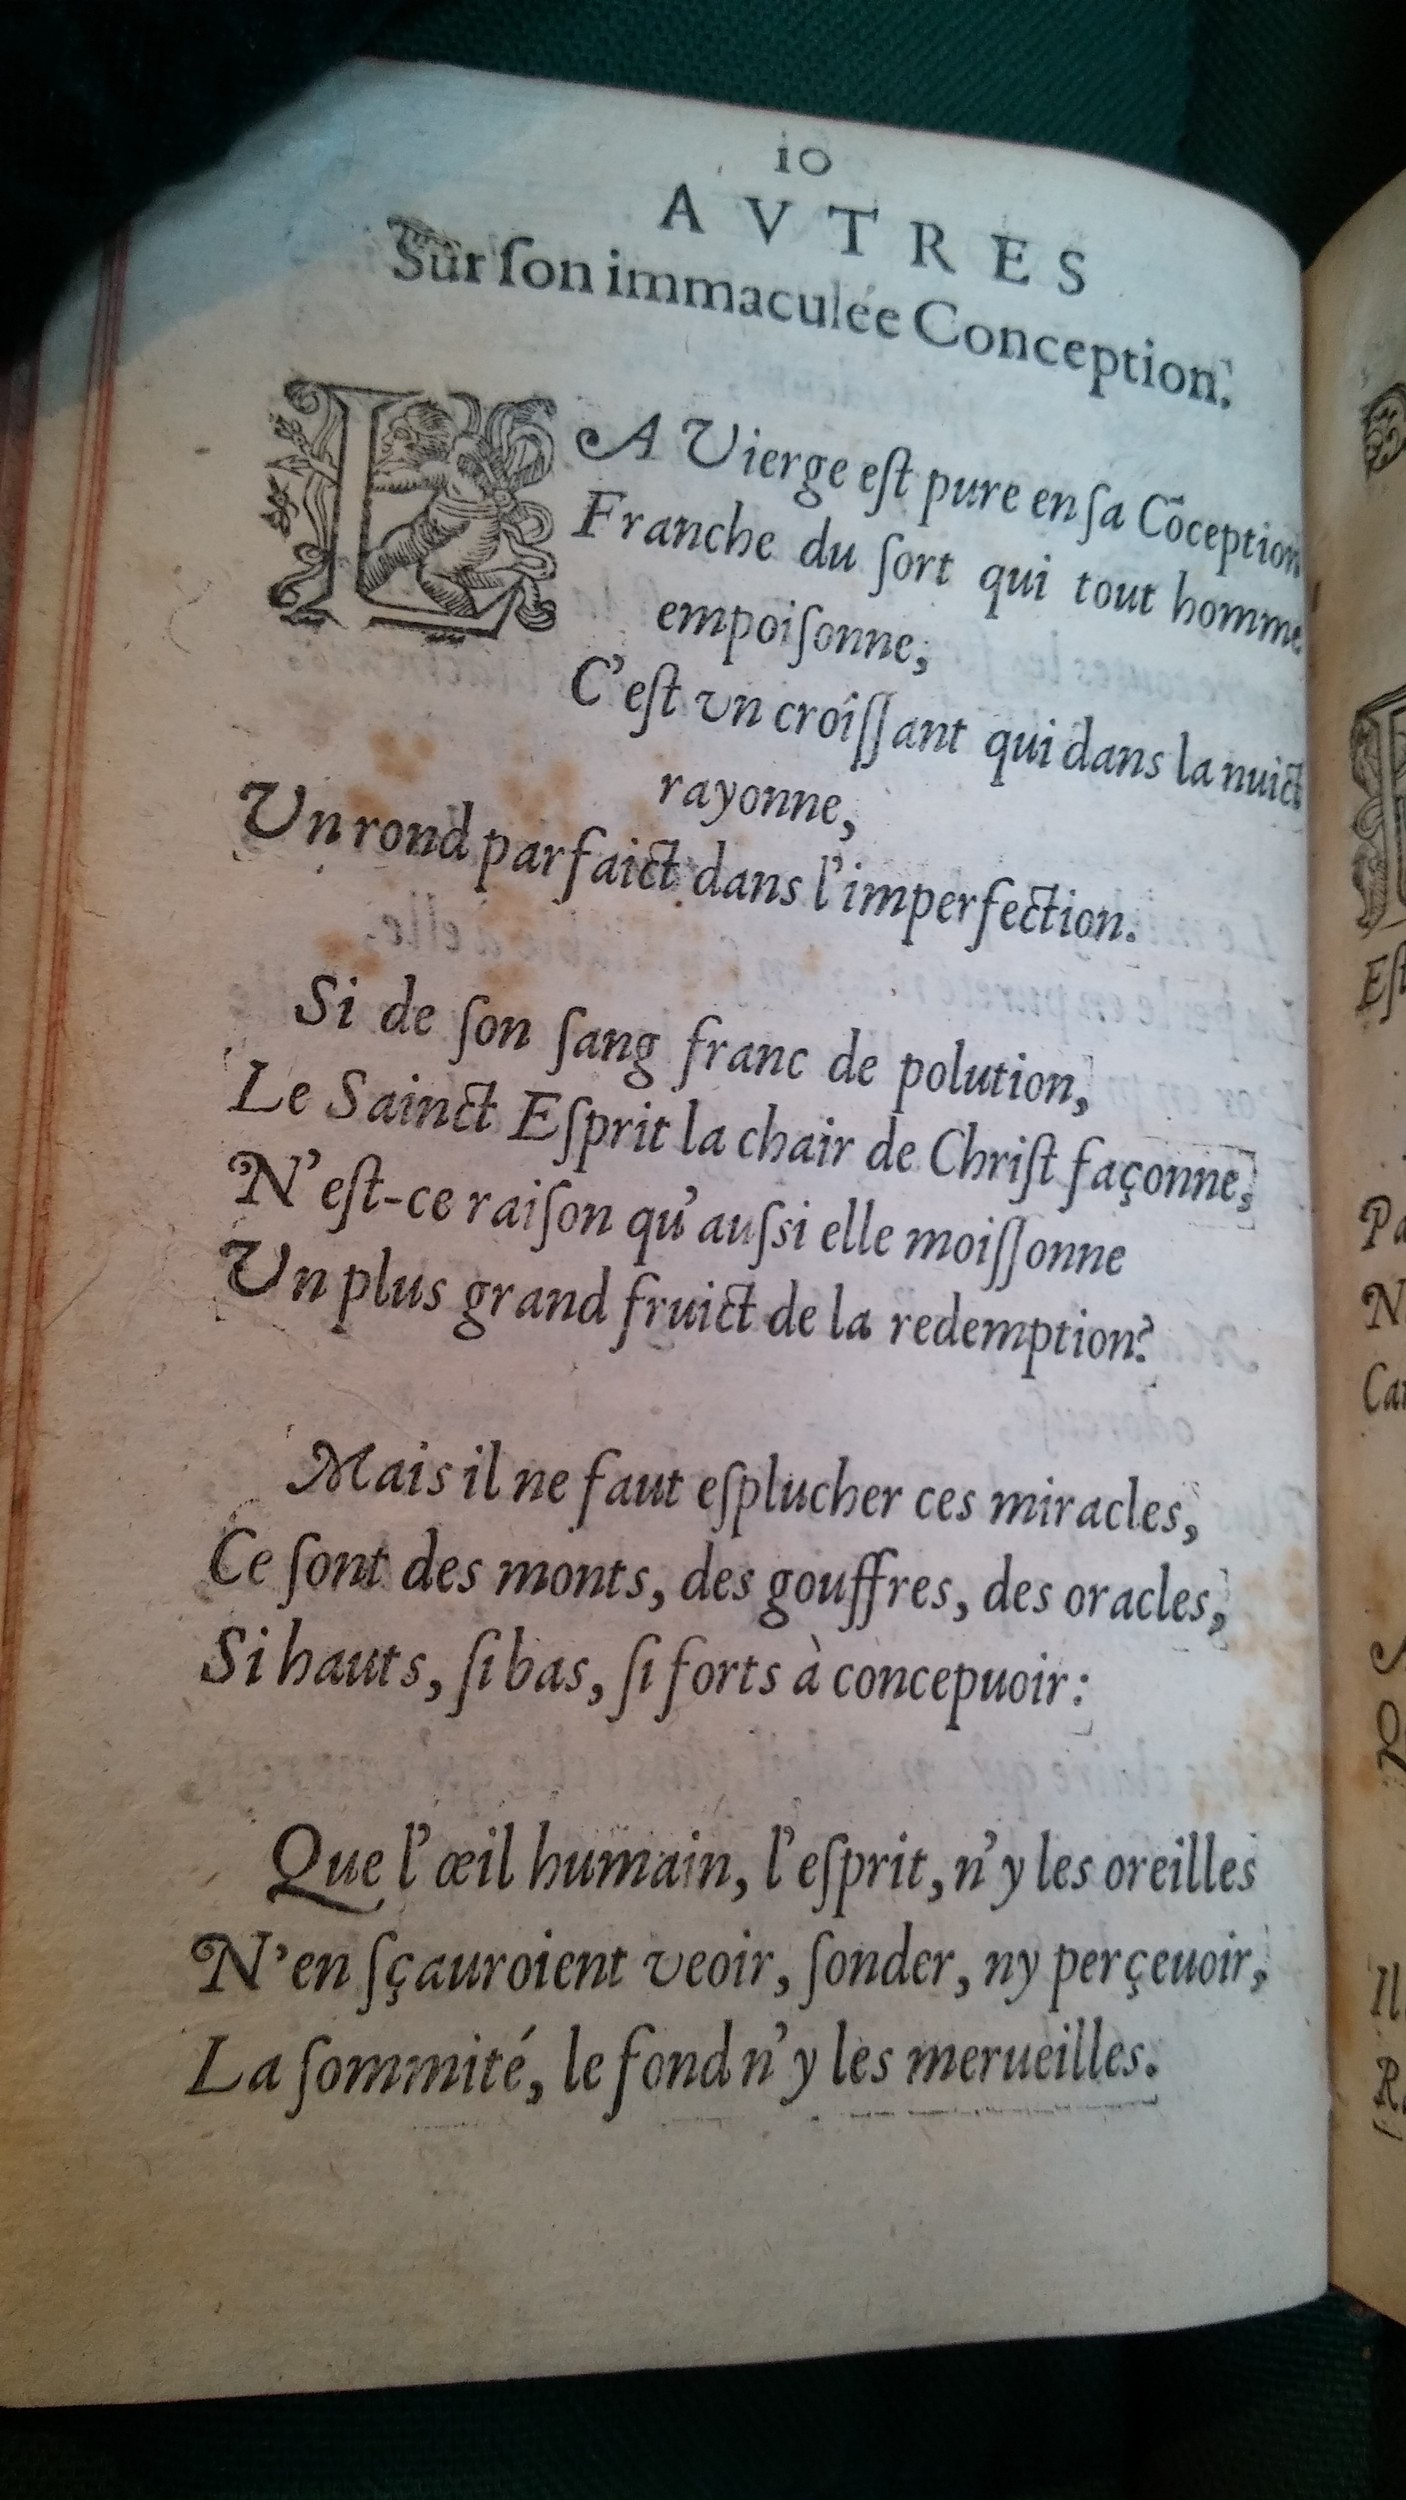 10
AVTRES
Sur ſon immaculée Conception.
LA Vierge eſt pure en ſa Cõception
Franche du ſort qui tout homme
empoiſonne,
C'eſt vn croîſſant qui dans la nuict
rayonne,
Vn rond parfaict dans l'imperfection.
Si de ſon ſang franc de polution,
Le Sainct Eſprit la chair de Chriſt façonne,
N'eſt-ce raiſon qu'auſsi elle moiſſonne
Vn plus grand fruict de la redemption?
Mais il ne faut eſplucher ces miracles,
Ce ſont des monts, des gouffres, des oracles,
Si hauts, ſi bas, ſi forts à concepuoir:
Que l'œil humain, l'eſprit, n'y les oreilles
N'en ſçauroient veoir, ſonder, ny perçeuoir,
La ſommité, le fond n'y les merueilles.